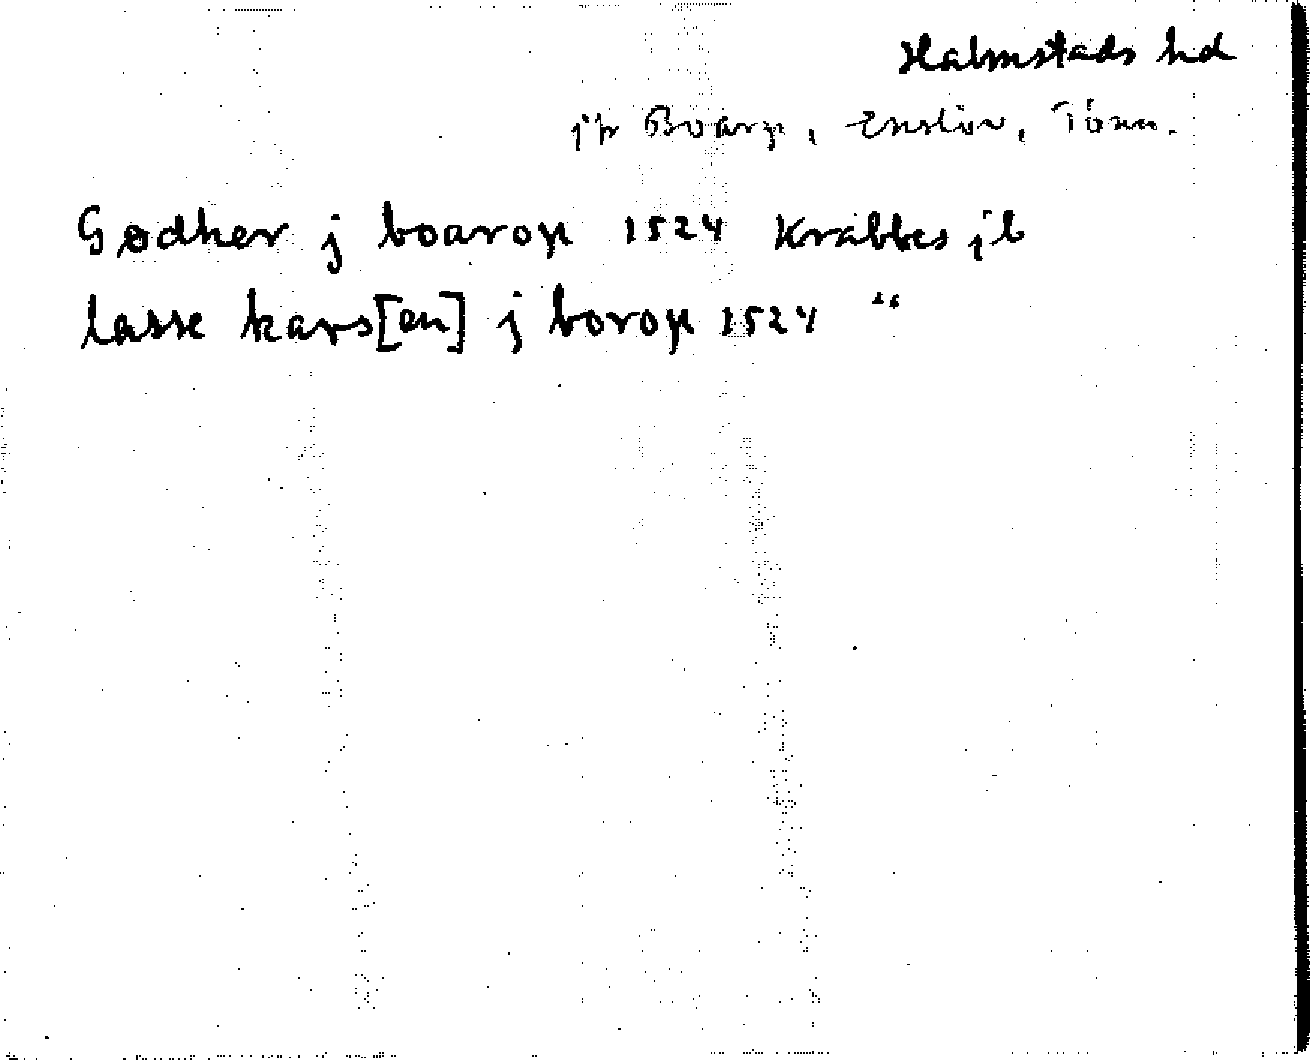 Halmstads hd
jfr Boarp, Enslöv, Tönn.
Gødher j boarop 1524 Krabbes jb
lasse kars[en] j borop 1524 "